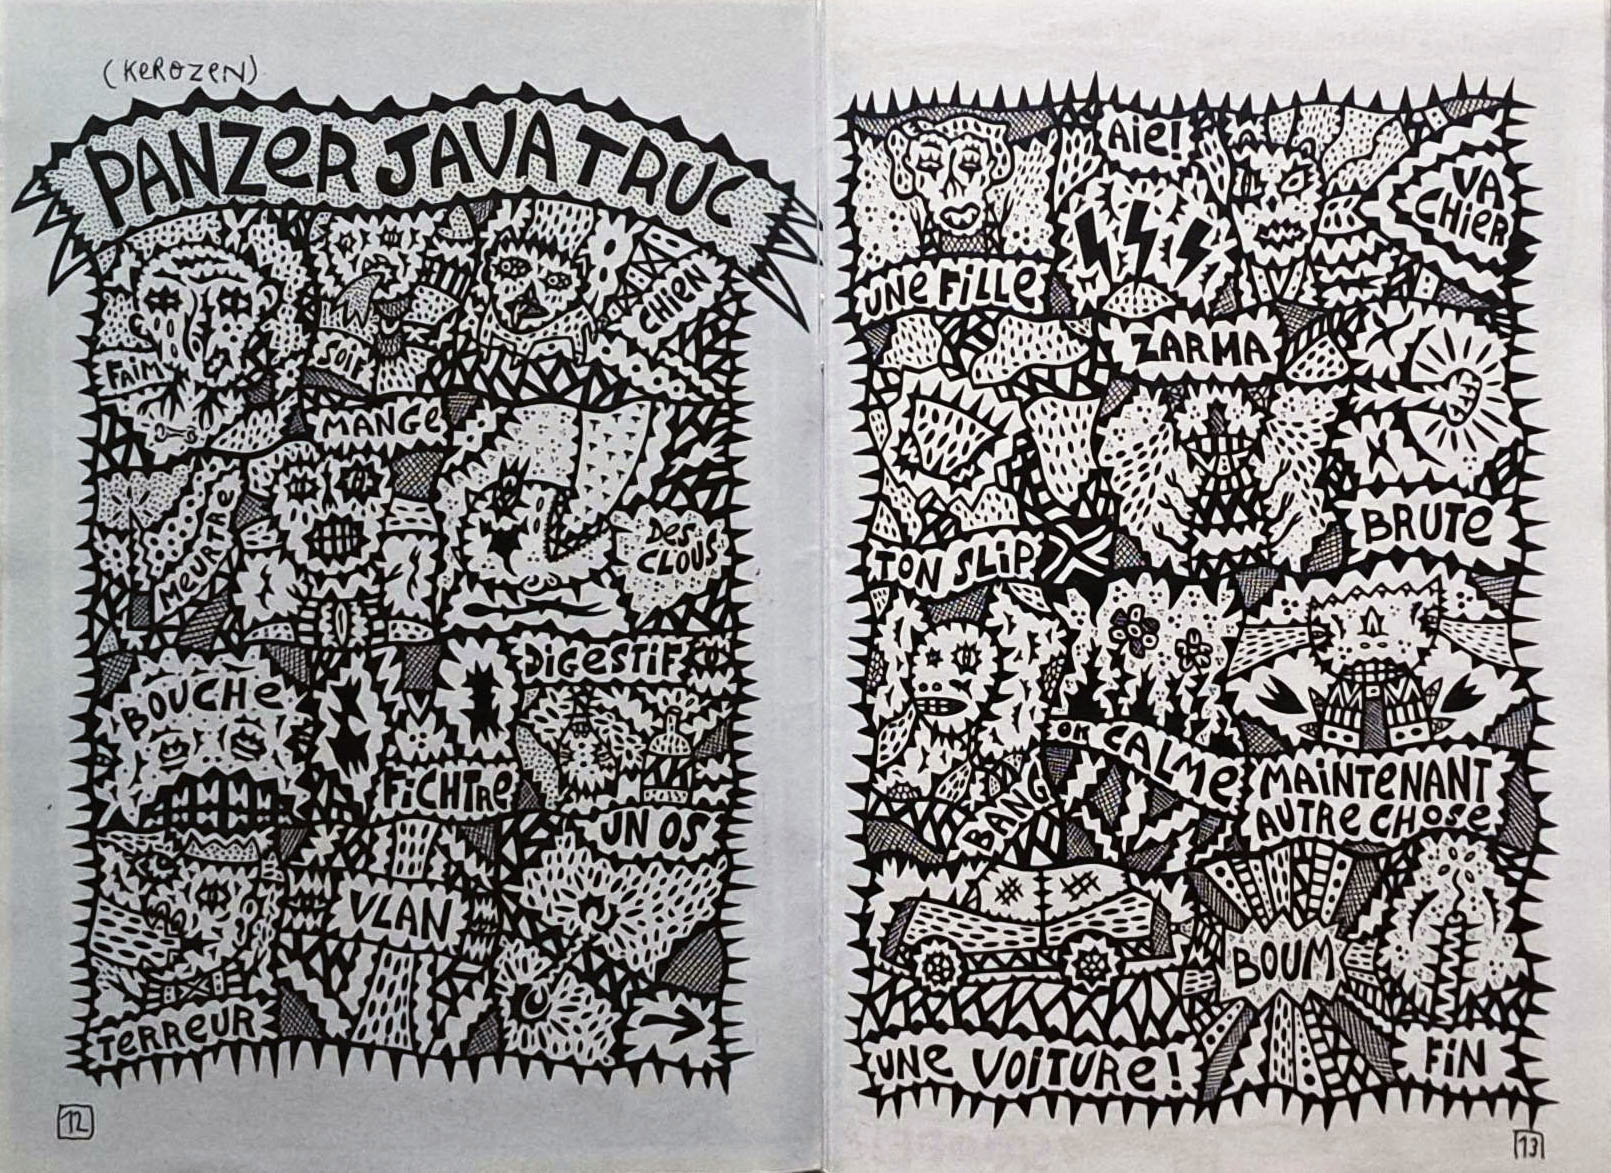 (KeROZeN)
PANZeR JAVA TRUC
FAiM
SOiF
CHIEN
MANGe
MeURTRe
Des
CLOUS
BOUCHe
DiGeSTiF
FiCHTRe
UN OS
TeRReUR
VLAN
12
UNe FiLLe
Aie!
VA
CHieR
ZARMA
TON SLiP
BRUTe
BANG
ON CALMe
MAiNTeNANT
AUTRe CHOSe
UNe VOiTURe!
BOUM
FiN
13